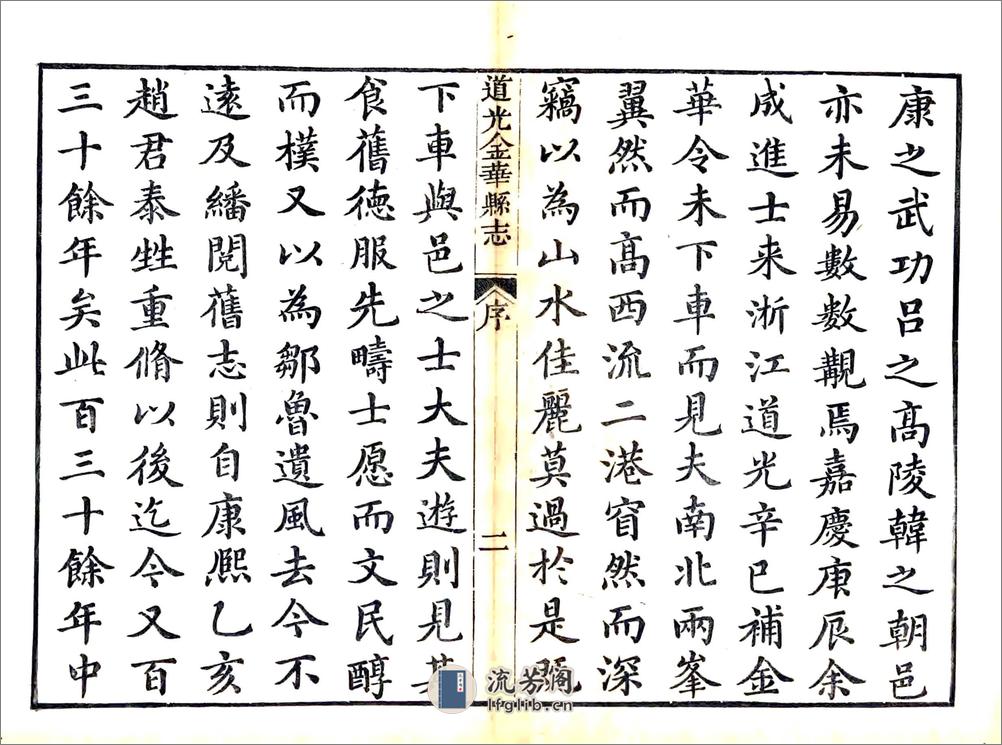 康之武功呂之髙陵韓之朝邑
亦未易數數覯焉嘉慶庚辰余
成進士来浙江道光辛巳補金
華令未下車而見夫南北兩峯
翼然而髙西流二港窅然而深
竊以為山水佳麗莫過於是既
道光金華縣志 序 二
下車與邑之士大夫遊則見其
食舊徳服先疇士愿而文民醇
而樸又以為鄒魯遺風去今不
遠及繙閱舊志則自康熙乙亥
趙君泰甡重脩以後迄今又百
三十餘年矣此百三十餘年中
流芳阁
lfglib.cn